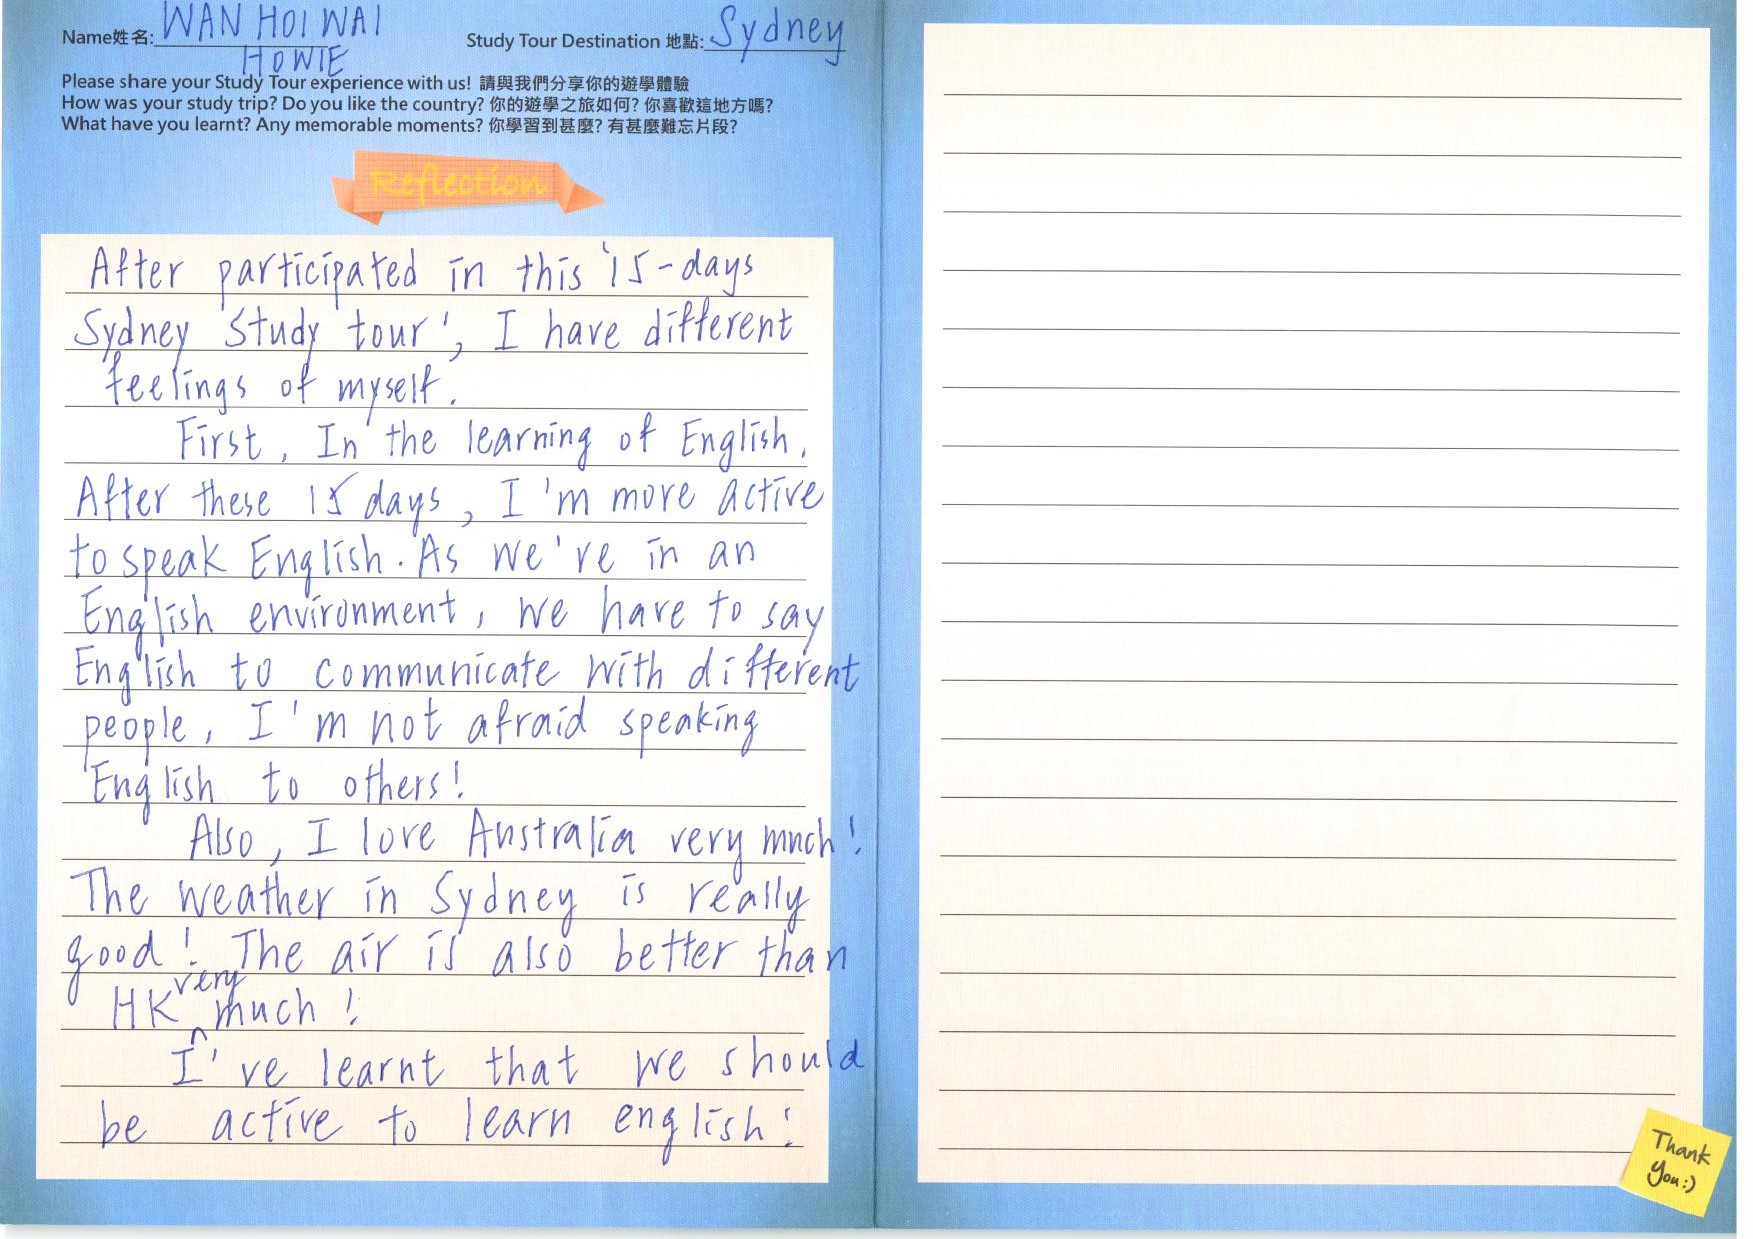 Name姓名: WAN HOI WAI
HOWIE
Study Tour Destination 地點: Sydney
Please share your Study Tour experience with us! 請與我們分享你的遊學體驗
How was your study trip? Do you like the country? 你的遊學之旅如何? 你喜歡這地方嗎?
What have you learnt? Any memorable moments? 你學習到甚麼? 有甚麼難忘片段?
Reflection
After participated in this '15-days
Sydney Study tour', I have different
feelings of myself.
First, In the learning of English.
After these 15 days, I'm more active
to speak English. As we've in an
English environment, we have to say
English to communicate with different
people, I'm not afraid speaking
English to others!
Also, I love Australia very much!
The weather in Sydney is really
good! The air is also better than
HK very much!
I've learnt that we should
be active to learn english!
Thank
You:)